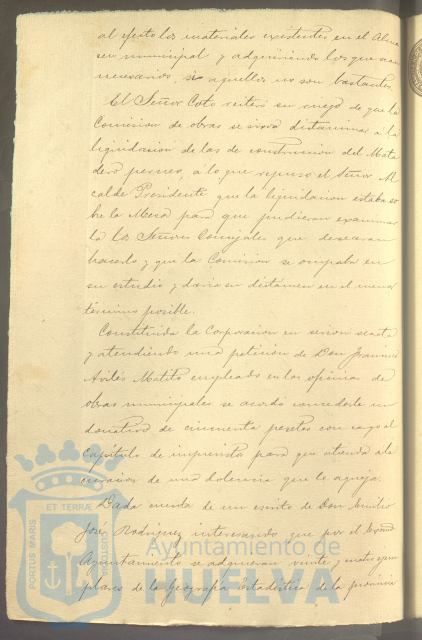 al efecto los materiales existentes en el Alma
cen municipal y adquiriendo los que sean
necesarios, si aquellos no son bastantes.
El Señor Coto reiteró su ruego de que la
Comision de obras se sirva dictaminar á la
liquidacion de las de construccion del Mata
dero público, á lo que repuso el Señor Al
calde Presidente que la liquidacion estaba so
bre la Mesa para que pudieran examinar
la los Señores Concejales que desearan
hacerlo y que la Comision se ocupaba en
su estudio y daria su dictamen en el menor
término posible.
Constituida la Corporacion en sesion secreta
y atendiendo una peticion de Don Francisco
Avilés Matito empleado en las oficinas de
obras municipales se acordó concederle un
donativo de cincuenta pesetas con cargo al
Capítulo de imprevistos para que atienda á la
curacion de una dolencia que le aqueja.
Dada cuenta de un escrito de Don Emilio
José Rodriguez interesando que por el Excmo
Ayuntamiento se adquieran veinte y cuatro ejem
plares de la Geografia Estadistica de la provincia
PORTUS MARIS ET TERRÆ CUSTODIA
Ayuntamiento de
HUELVA